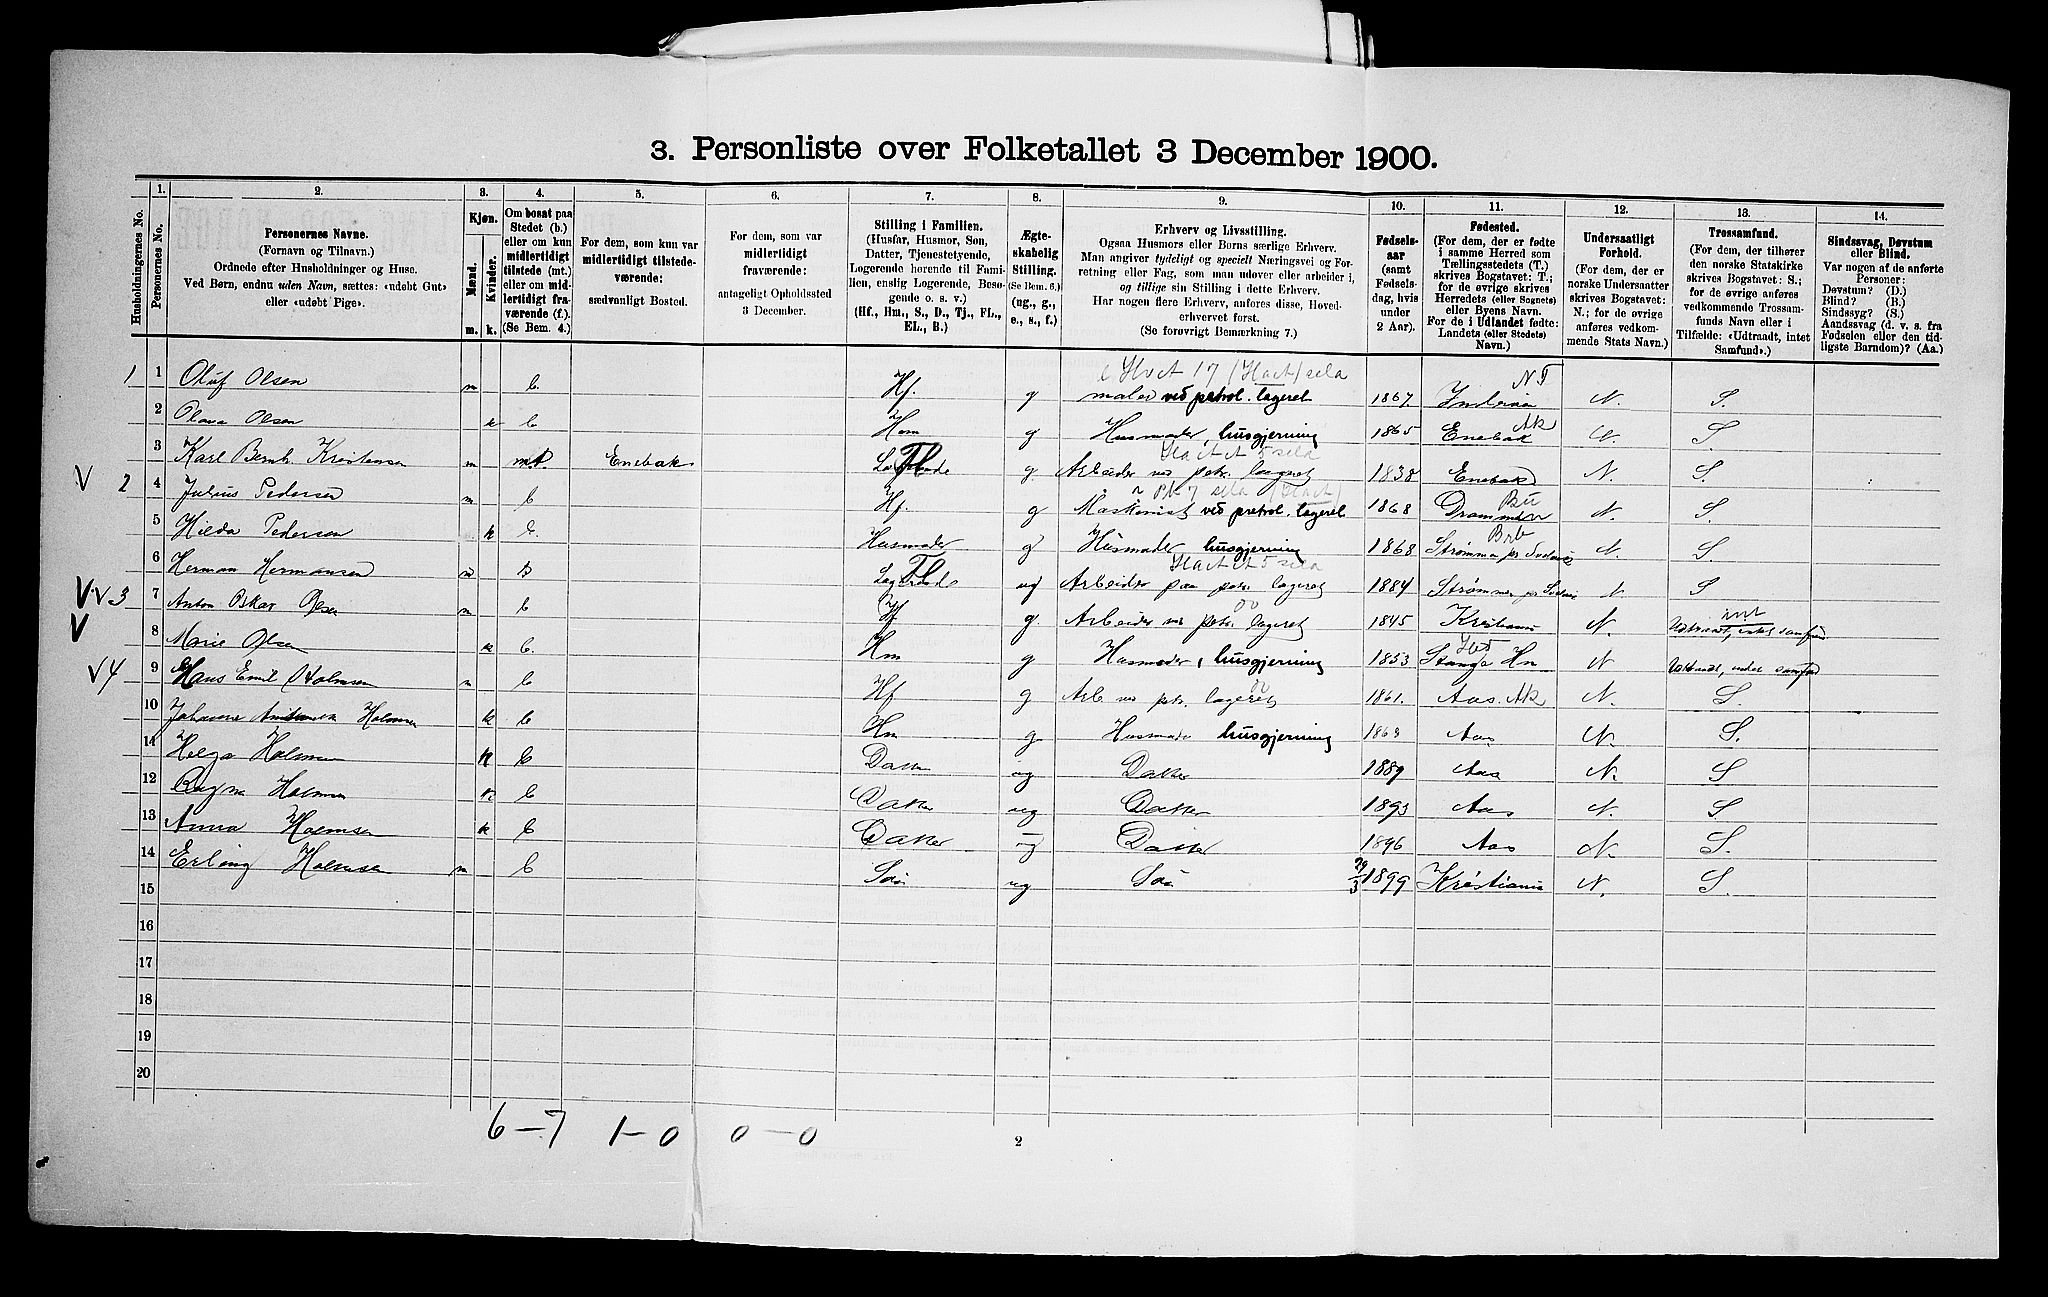 3. Personliste over Folketallet 3 December 1900.
Husholdningernes No.
1.
Personernes No.
2.
Personernes Navne.
(Fornavn og Tilnavn.)
Ordnede efter Husholdninger og Huse.
Ved Børn, endnu uden Navn, sættes: «udøbt Gut»
eller «udøbt Pige».
3.
Kjøn.
Mænd. Kvinder.
m. k.
4.
Om bosat paa
Stedet (b.)
eller om kun
midlertidigt
tilstede (mt.)
eller om mid-
lertidigt fra-
værende (f.).
(Se Bem. 4.)
5.
For dem, som kun var
midlertidigt tilstede-
værende:
sædvanligt Bosted.
6.
For dem, som var
midlertidigt
fraværende:
antageligt Opholdssted
3 December.
7.
Stilling i Familien.
(Husfar, Husmor, Søn,
Datter, Tjenestetyende,
Logerende hørende til Fami-
lien, enslig Logerende, Besø-
gende o. s. v.)
(Hf., Hm., S., D., Tj., FL.,
EL., B.)
8.
Ægte-
skabelig
Stilling.
(Se Bem. 6.)
(ug., g.,
e., s., f.)
9.
Erhverv og Livsstilling.
Ogsaa Husmors eller Børns særlige Erhverv.
Man angiver tydeligt og specielt Næringsvei og For-
retning eller Fag, som man udøver eller arbeider i,
og tillige sin Stilling i dette Erhverv.
Har nogen flere Erhverv, anføres disse, Hoved-
erhvervet først.
(Se forøvrigt Bemærkning 7.)
10.
Fødsels-
aar
(samt
Fødsels-
dag, hvis
under
2 Aar).
11.
Fødested.
(For dem, der er fødte
i samme Herred som
Tællingsstedets (T.)
skrives Bogstavet: T.;
for de øvrige skrives
Herredets (eller Sognets)
eller Byens Navn.
For de i Udlandet fødte:
Landets (eller Stedets)
Navn.)
12.
Undersaatligt
Forhold.
(For dem, der er
norske Undersaatter
skrives Bogstavet:
N.; for de øvrige
anføres vedkom-
mende Stats Navn.)
13.
Trossamfund.
(For dem, der tilhører
den norske Statskirke
skrives Bogstavet: S.;
for de øvrige anføres
vedkommende Trossam-
funds Navn eller i
Tilfælde: «Udtraadt, intet
Samfund».)
14.
Sindssvag, Døvstum
eller Blind.
Var nogen af de anførte
Personer:
Døvstum? (D.)
Blind? (B.)
Sindssyg? (S.)
Aandssvag (d. v. s. fra
Fødselen eller den tid-
ligste Barndom)? (Aa.)
1 1 Oluf Olsen m b Hf. g maler ved petrol. lageret 1867. N. S.
2 Olava Olsen k b Hm g Husmoder, husgjerning 1865 Enebak Ak N. S.
3 Karl Bernh. Kristensen m mt Enebak FL g. Arbeider ved petr. lageret 1838 Enebak N. S.
V 2 4 Julius Pedersen m b Hf. g Maskinist ved petrol. lageret 1868 Drammen Bu N. S.
5 Hilda Pedersen k b. Husmoder g Husmoder husgjerning 1868. Strømmen N. S.
6 Herman Hermansen m b FL ug Arbeider paa petr. lageret 1884 Strømmen N S
V V 3 7 Anton Oskar Olsen m b Hf g Arbeider ved petr. lageret 1845 Kristiania N. Udtraadt, intet samfund
V 8 Marie Olsen k b. Hm g Husmoder, husgjerning 1853 Stange N Udtraadt, intet samfund
V 4 9 Hans Emil Holmsen m b Hf g Arb. ved petr. lageret 1861. Aas. Ak N. S.
10 Johanne Holmsen k b Hm g Husmoder husgjerning 1863 Aas N. S.
11 Helga Holmsen k b Datter ug Datter 1889 Aas N. S
12 Ragna Holmsen k b Datter ug Datter 1893 Aas N. S
13 Anna Holmsen k b Datter ug Datter 1896 Aas N. S.
14 Erling Holmsen m b Søn ug Søn 29/3 1899 Kristiania N. S.
15
16
17
18
19
20
6-7 1-0 0-0
2